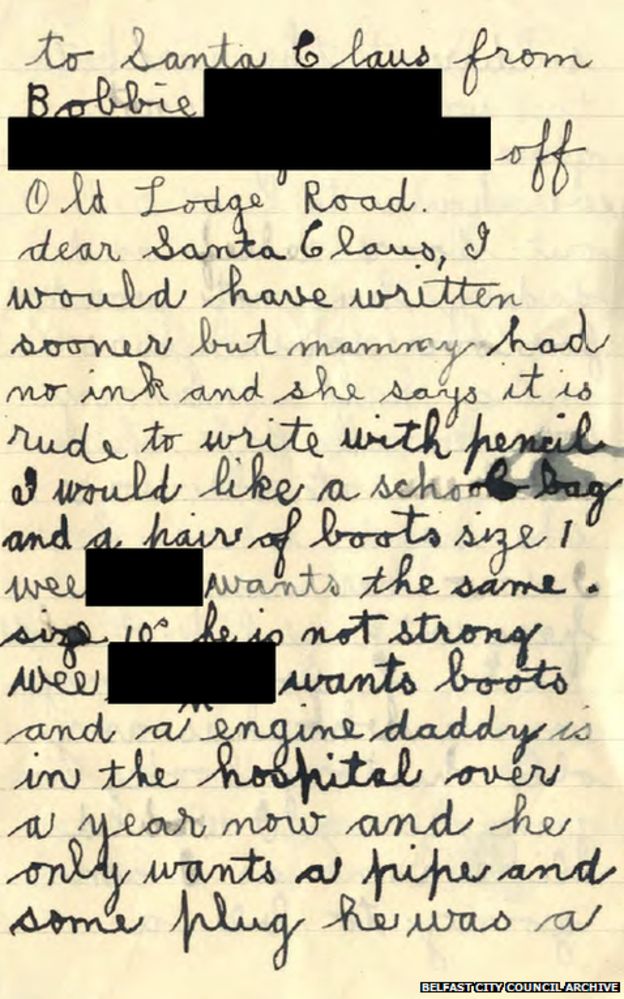 to Santa Claus from
Bobbie
off
Old Lodge Road.
dear Santa Claus, I
would have written
sooner but mammy had
no ink and she says it is
rude to write with pencil
I would like a school bag
and a pair of boots size 1
wee wants the same.
size 10s he is not strong
wee wants boots
and an engine daddy is
in the hospital over
a year now and he
only wants a pipe and
some plug he was a
BELFAST CITY COUNCIL ARCHIVE